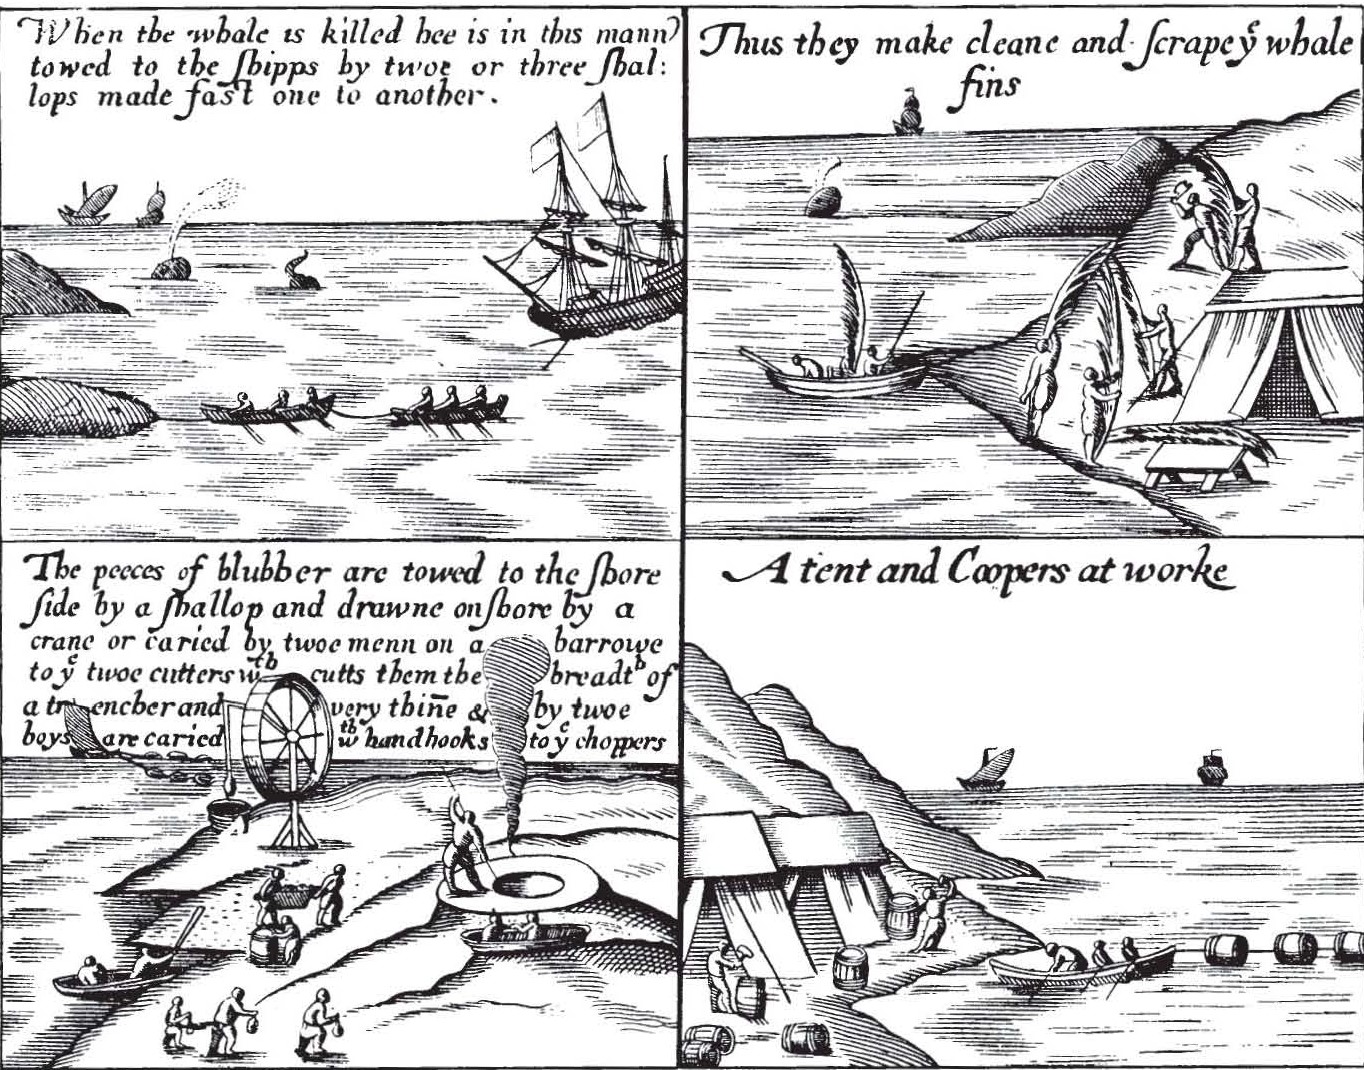 When the whale is killed hee is in this mann
towed to the shipps by twoe or three shal:
lops made fast one to another.
Thus they make cleane and scrape yͤ whale
fins
The peeces of blubber are towed to the shore
side by a shallop and drawne on shore by a
crane or caried by twoe menn on a barrowe
to yͤ twoe cutters wᵗʰ cutts them the breadtʰ of
a trencher and very thin̄e & by twoe
boys are caried wᵗʰ handhooks to yͤ choppers
A tent and Coopers at worke